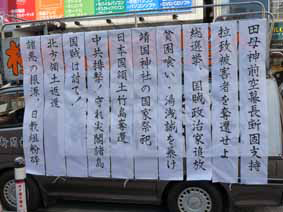 田母神前空幕長断固支持
拉致被害者を奪還せよ
総選挙、国賊政治家追放
貧困喰い、湯浅誠を裁け
靖国神社の国家祭祀
日本国領土竹島奪還
中共排撃！守れ尖閣諸島
国賊は討て！
北方領土返還
諸悪の根源、日教組粉砕